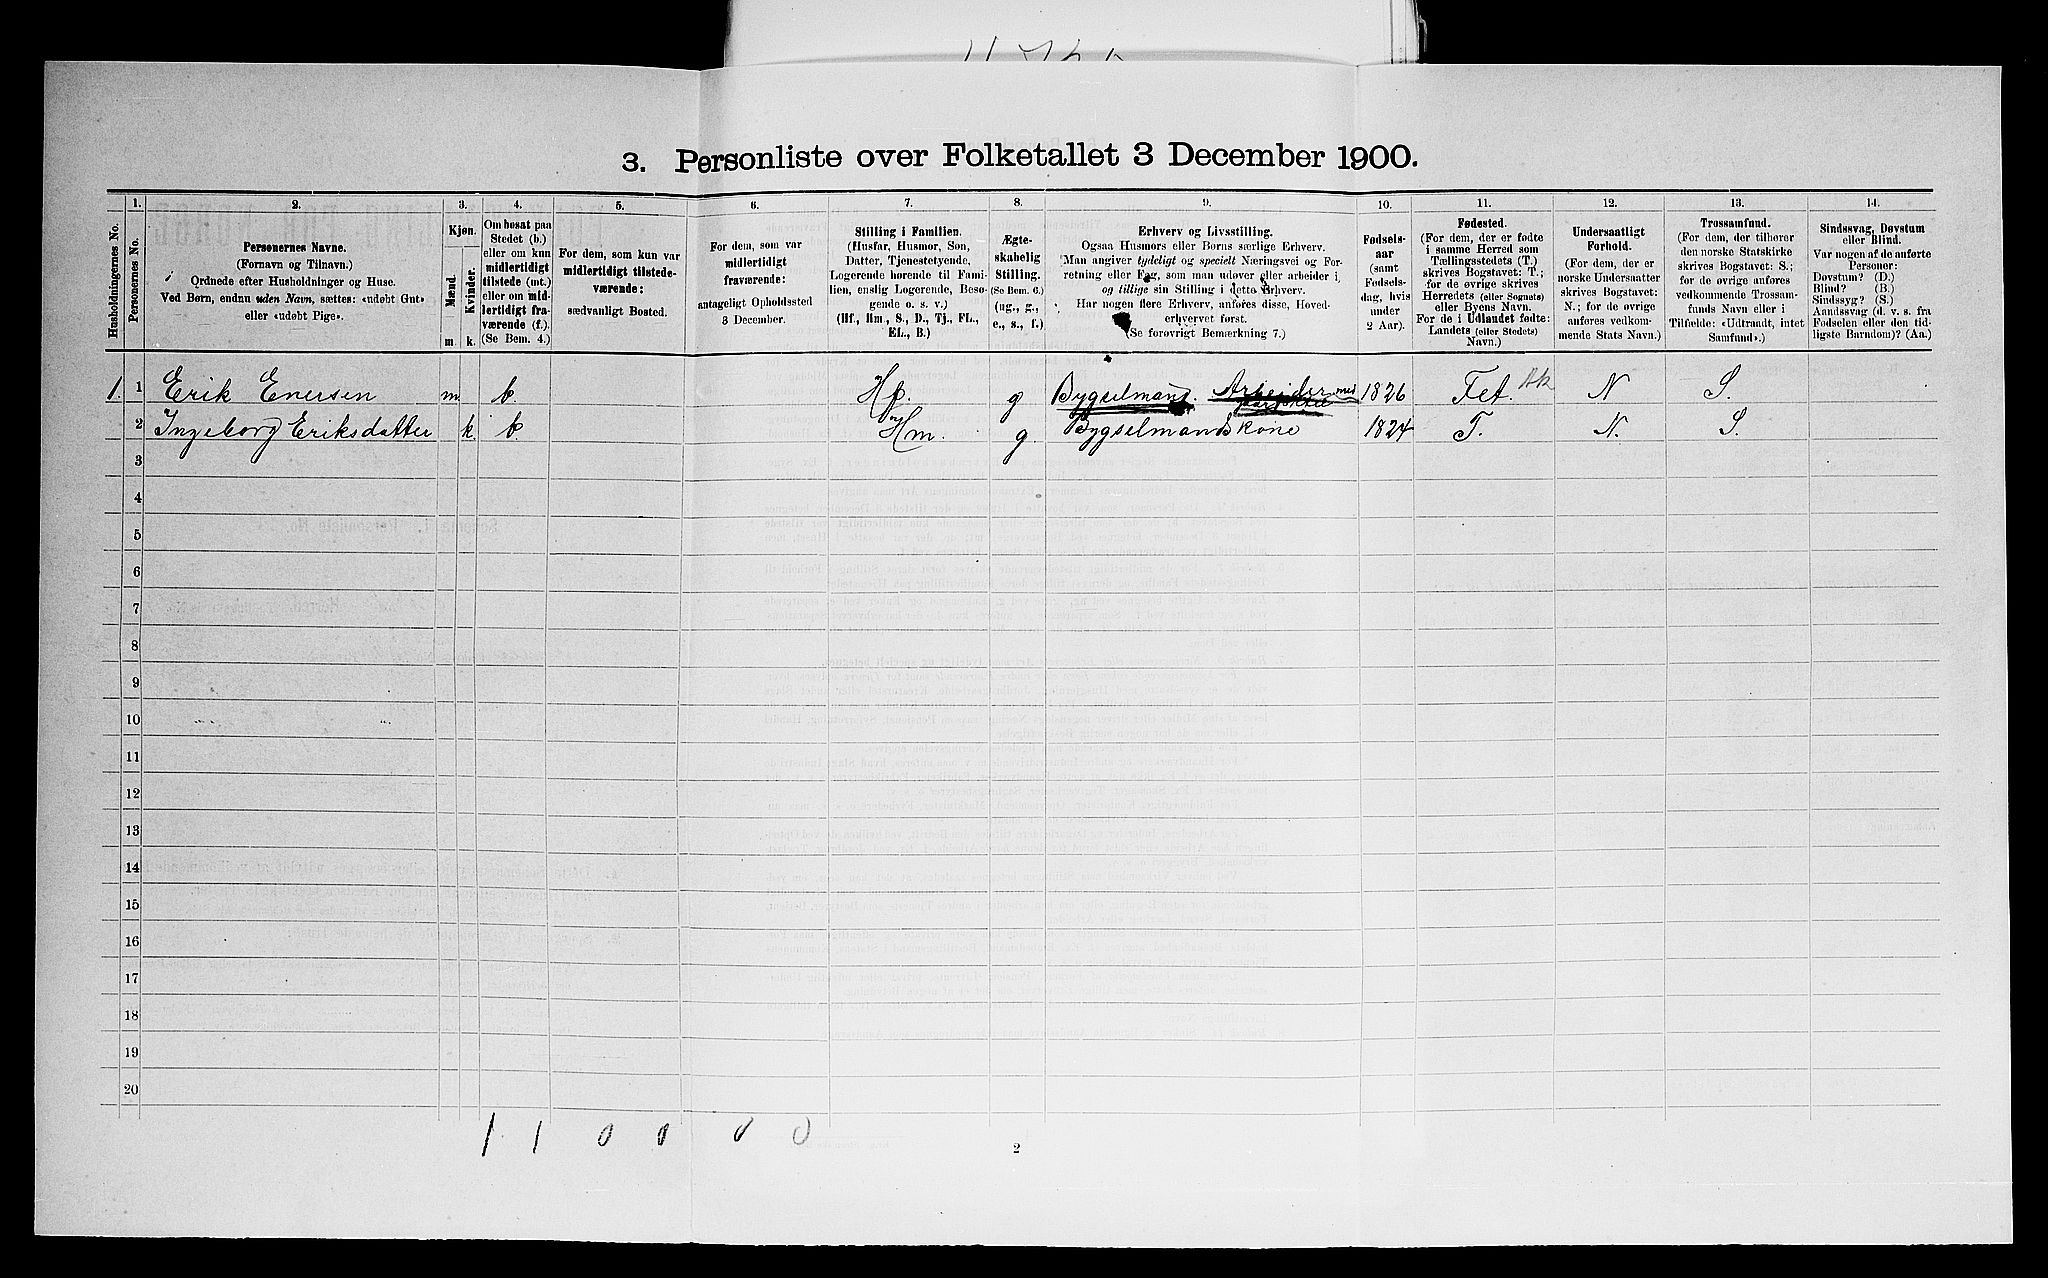 3. Personliste over Folketallet 3 December 1900.
Husholdningernes No.
1.
Personernes No.
2.
Personernes Navne.
(Fornavn og Tilnavn.)
Ordnede efter Husholdninger og Huse.
Ved Børn, endnu uden Navn, sættes: «udøbt Gut»
eller «udøbt Pige».
3.
Kjøn.
Mænd.
Kvinder.
m. k.
4.
Om bosat paa
Stedet (b.)
eller om kun
midlertidigt
tilstede (mt.)
eller om mid-
lertidigt fra-
værende (f.).
(Se Bem. 4.)
5.
For dem, som kun var
midlertidigt tilstede-
værende:
sædvanligt Bosted.
6.
For dem, som var
midlertidigt
fraværende:
antageligt Opholdssted
3 December.
7.
Stilling i Familien.
(Husfar, Husmor, Søn,
Datter, Tjenestetyende,
Logerende hørende til Fami-
lien, enslig Logerende, Besø-
gende o. s. v.)
(Hf., Hm., S., D., Tj., FL.,
EL., B.)
8.
Ægte-
skabelig
Stilling.
(Se Bem. 6.)
(ug., g.,
e., s., f.)
9.
Erhverv og Livsstilling.
Ogsaa Husmors eller Børns særlige Erhverv.
Man angiver tydeligt og specielt Næringsvei og For-
retning eller Fag, som man udøver eller arbeider i,
og tillige sin Stilling i dette Erhverv.
Har nogen flere Erhverv, anføres disse, Hoved-
erhvervet først.
(Se forøvrigt Bemærkning 7.)
10.
Fødsels-
aar
(samt
Fødsels-
dag, hvis
under
2 Aar).
11.
Fødested.
(For dem, der er fødte
i samme Herred som
Tællingsstedets (T.)
skrives Bogstavet: T.;
for de øvrige skrives
Herredets (eller Sognets)
eller Byens Navn.
For de i Udlandet fødte:
Landets (eller Stedets)
Navn.)
12.
Undersaatligt
Forhold.
(For dem, der er
norske Undersaatter
skrives Bogstavet:
N.; for de øvrige
anføres vedkom-
mende Stats Navn.)
13.
Trossamfund.
(For dem, der tilhører
den norske Statskirke
skrives Bogstavet: S.;
for de øvrige anføres
vedkommende Trossam-
funds Navn eller i
Tilfælde: «Udtraadt, intet
Samfund».)
14.
Sindssvag, Døvstum
eller Blind.
Var nogen af de anførte
Personer:
Døvstum? (D.)
Blind? (B.)
Sindssyg? (S.)
Aandssvag (d. v. s. fra
Fødselen eller den tid-
ligste Barndom)? (Aa.)
1. 1 Erik Enersen m. b. Hf. g Bygselmand. Arbeider med 1826 Fet. Ak N S.
2 Ingeborg Eriksdatter k. b Hm. g Bygselmandskone 1824 T. N. S.
3
4
5
6
7
8
9
10
11
12
13
14
15
16
17
18
19
20
1 1 0 0 0 0
2